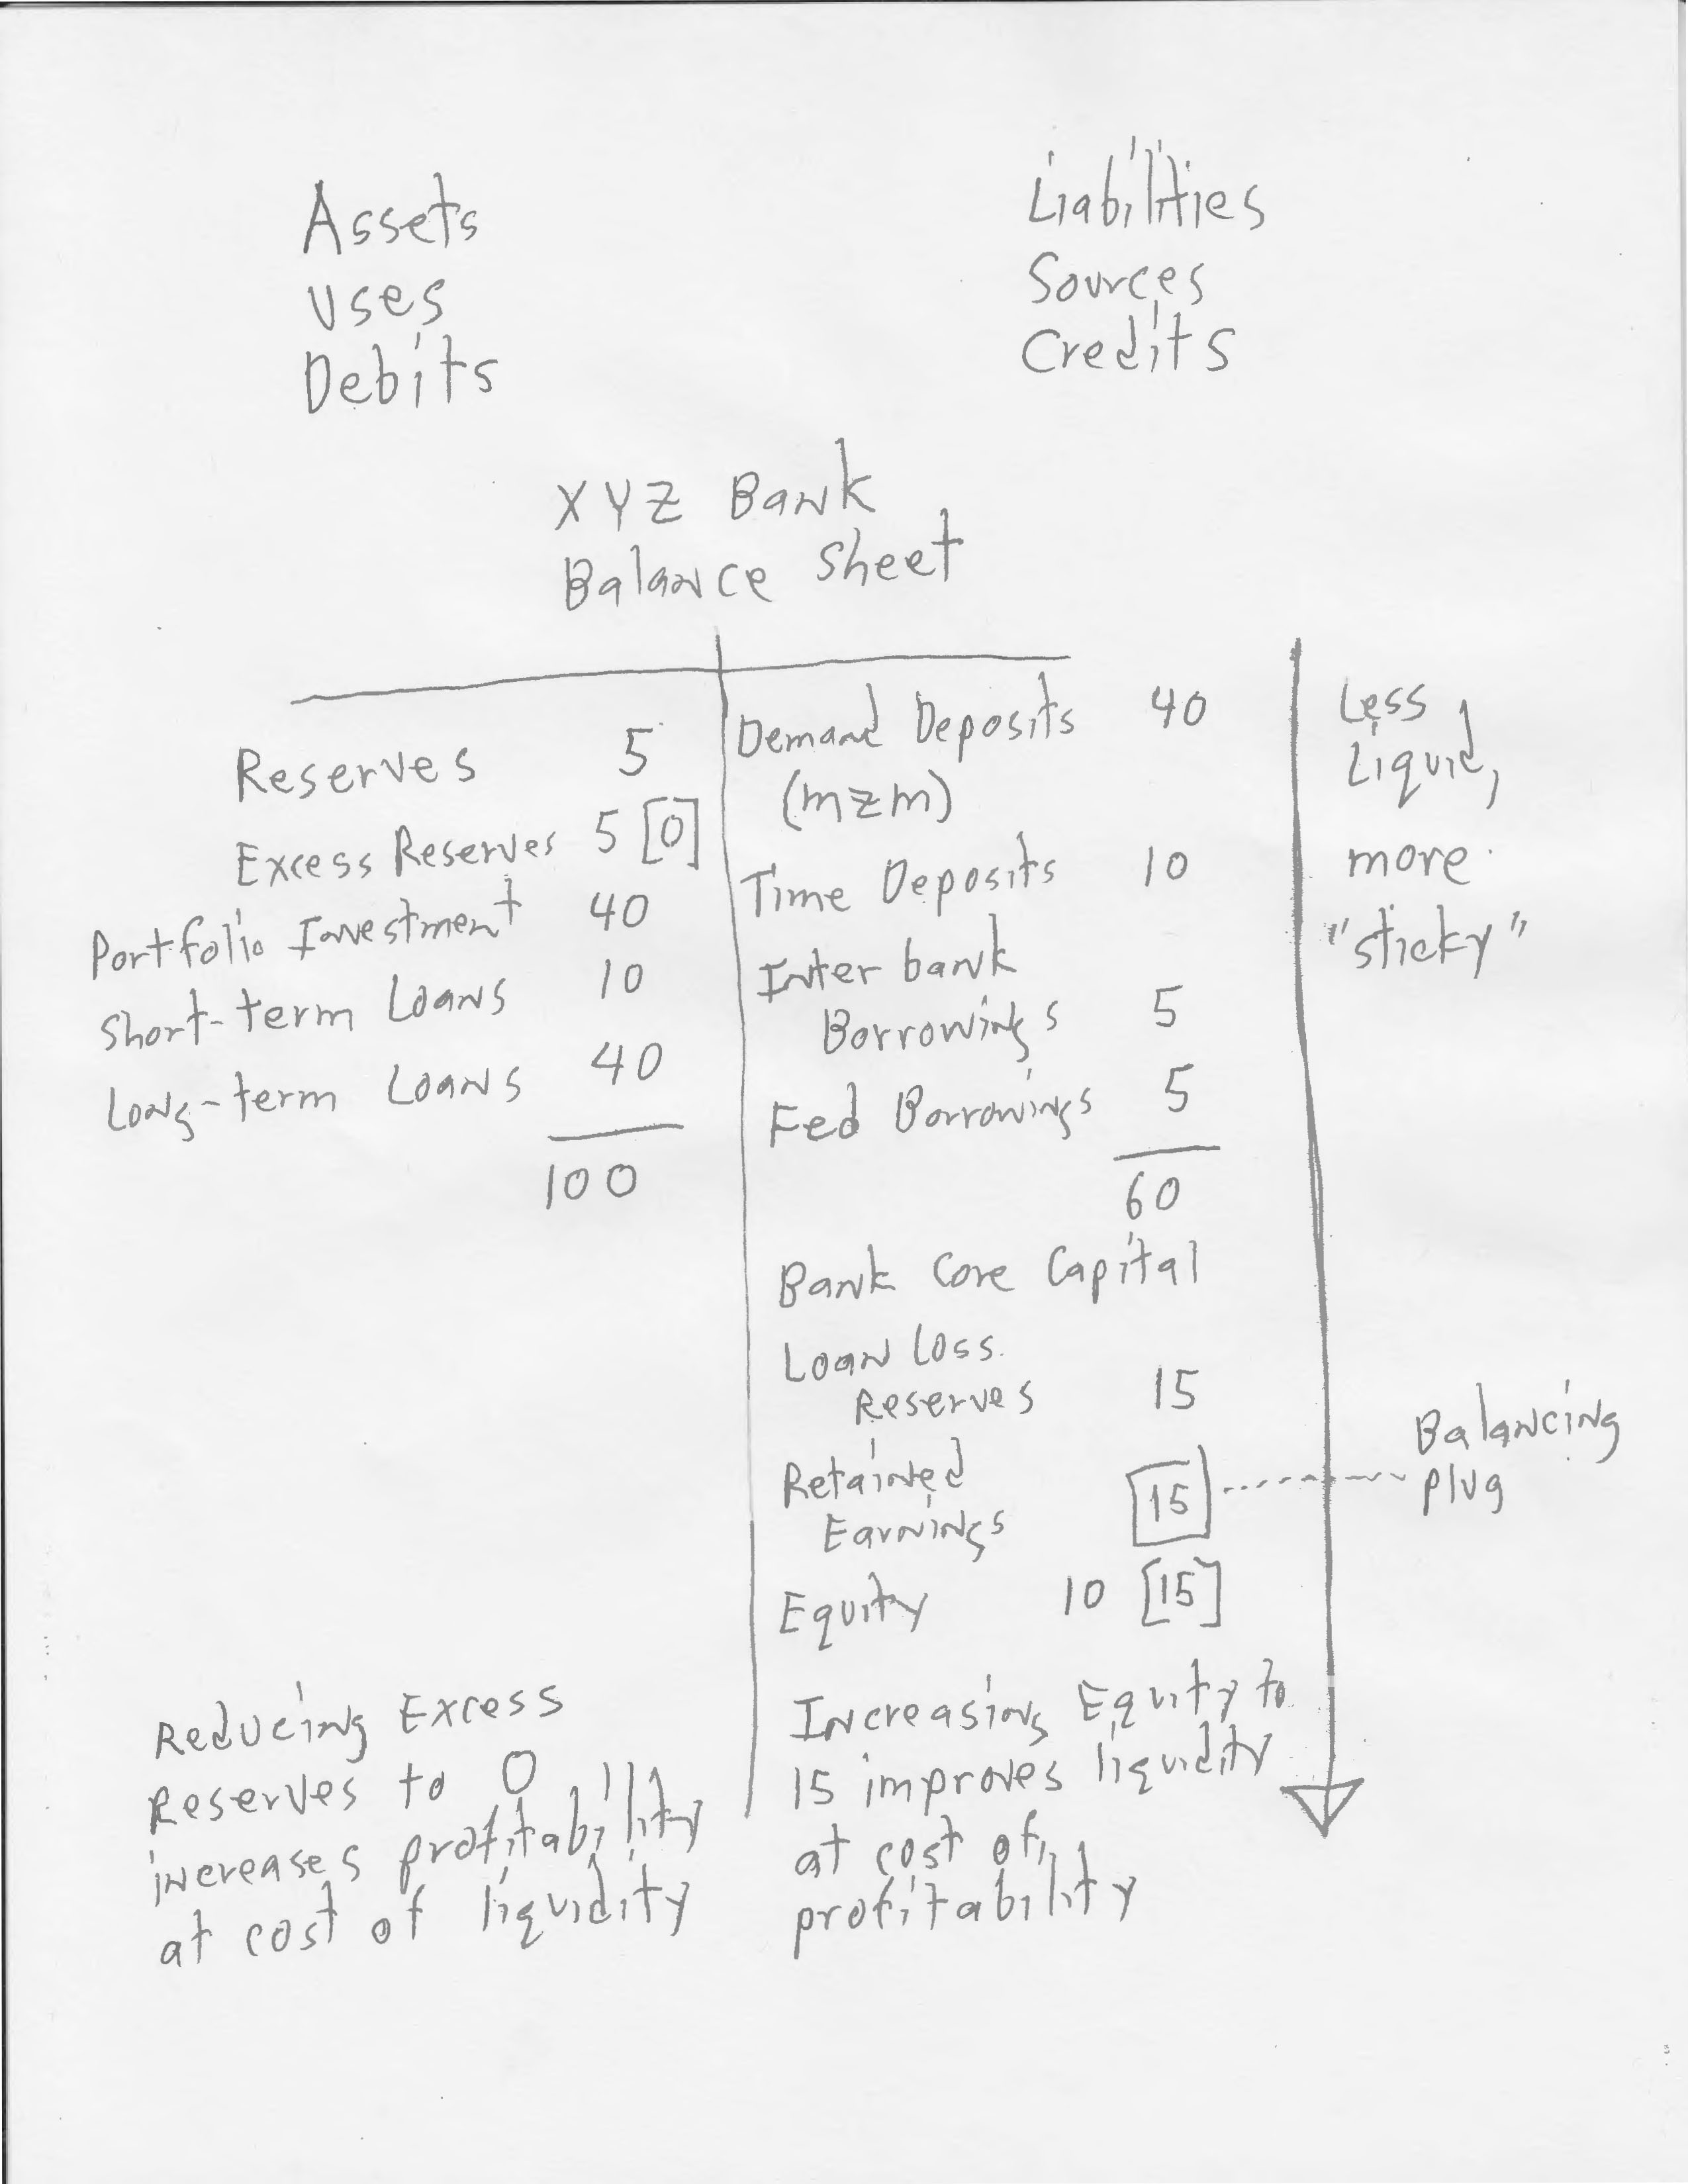 Assets
Uses
Debits
Liabilities
Sources
Credits
XYZ Bank
Balance Sheet
Reserves 5
Excess Reserves 5 [0]
Portfolio Investment 40
Short-term Loans 10
Long-term Loans 40
100
Demand Deposits 40
(mzm)
Time Deposits 10
Inter bank
Borrowings 5
Fed Borrowings 5
60
Bank Core Capital
Loan Loss
Reserves 15
Retained
Earnings 15
Equity 10 [15]
Less
Liquid,
more
"sticky"
Balancing
plug
Reducing Excess
Reserves to 0
increases profitability
at cost of liquidity
Increasing Equity to
15 improves liquidity
at cost of
profitability